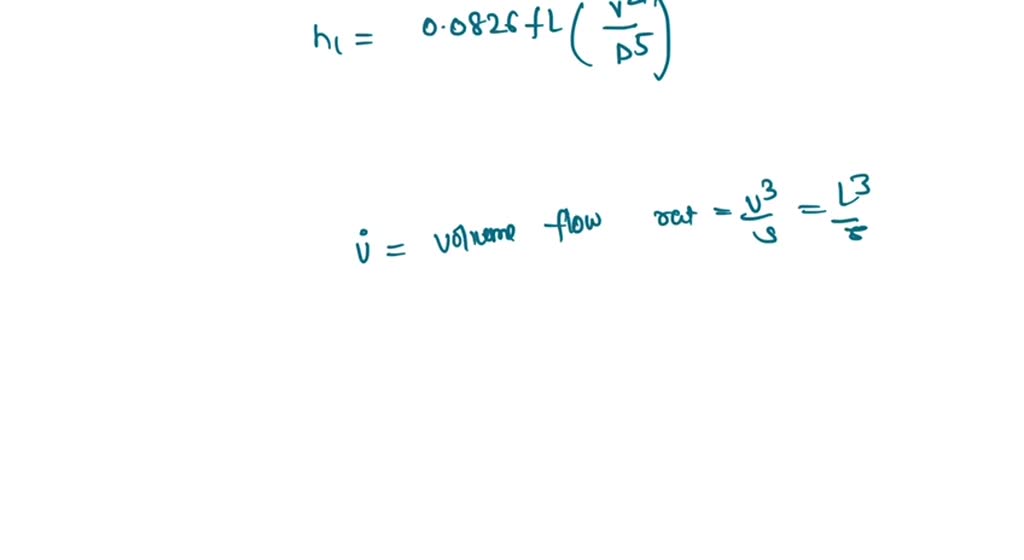 h₁ = 0.0826 fL (V²/D⁵)
V̇ = volume flow rat = V³/s = L³/